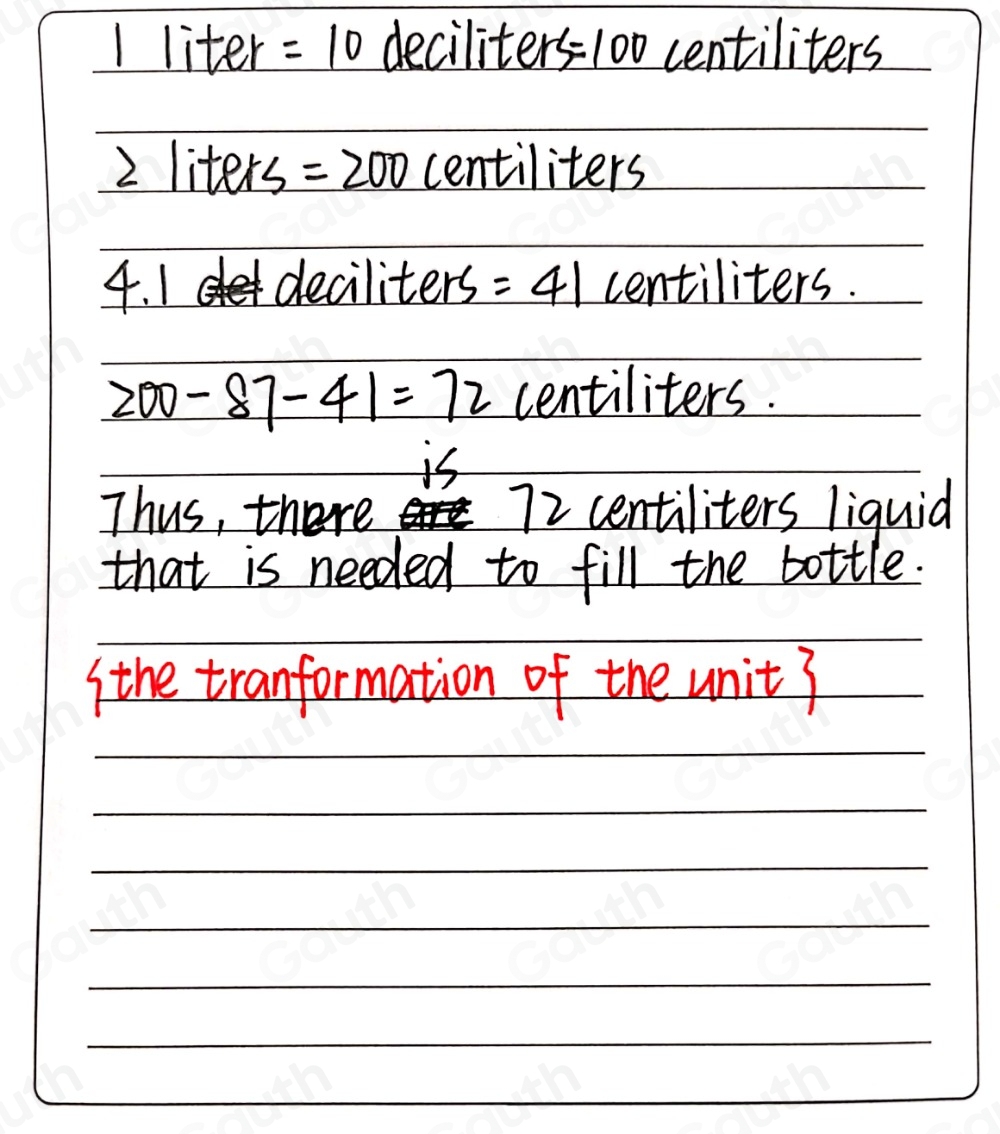 1 liter = 10 deciliters=100 centiliters
2 liters = 200 centiliters
4.1 deciliters = 41 centiliters.
200-87-41= 72 centiliters.
is
Thus, there are 72 centiliters liquid
that is needed to fill the bottle.
{the tranformation of the unit}